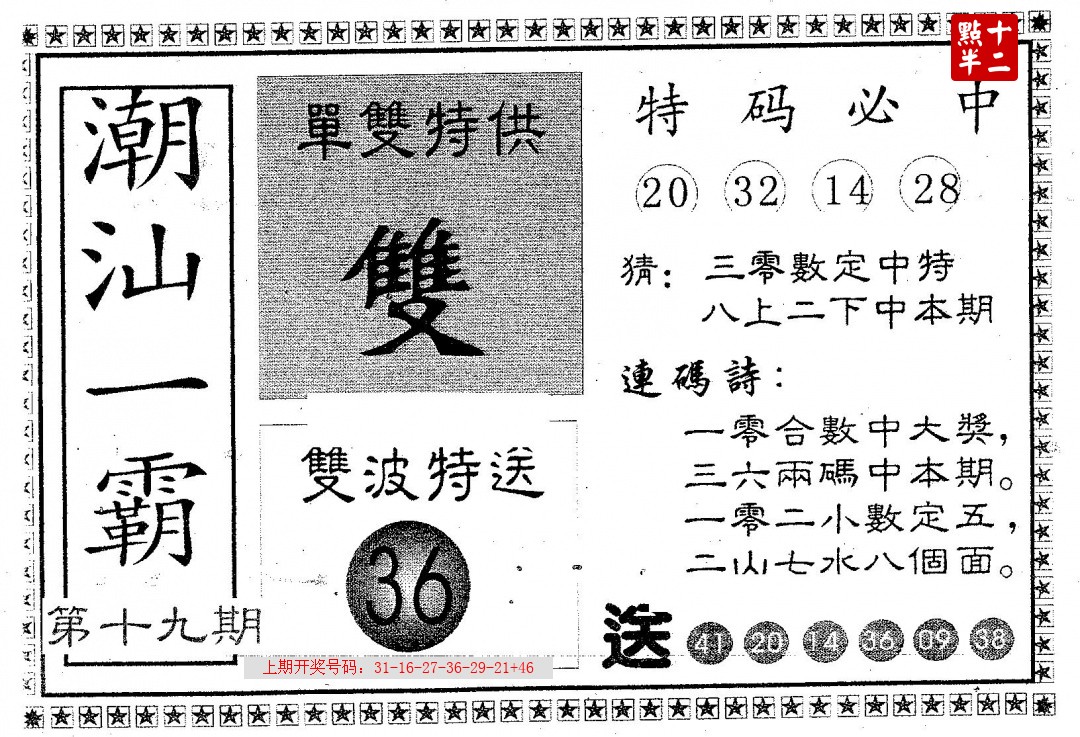 點十
半二
潮汕一霸
第十九期
單雙特供
雙
雙波特送
36
上期开奖号码：31-16-27-36-29-21+46
特码必中
20 32 14 28
猜：三零數定中特
八上二下中本期
連碼詩：
一零合數中大獎，
三六兩碼中本期。
一零二小數定五，
二山七水八個面。
送 41 20 14 36 09 38